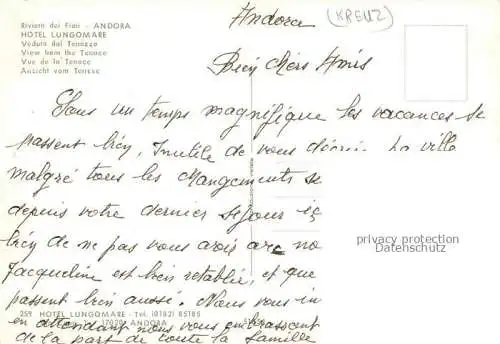 Riviera dei Fiori - ANDORA
HOTEL LUNGOMARE
Veduta dal Terrazzo
View from the Terrace
Vue de la Terrace
Ansicht vom Terrase
Andora
(KREUZ)
Bien chers Amis
Sous un temps magnifique les vacances se
passent bien, Inutile de vous décrire la ville
malgré tous les changements
depuis votre dernier séjour ici
de ne pas vous avoir avec no
Jacqueline est bien rétablie, et que
passent bien aussi. Nous vous
en attendant nous vous embrassent
de la part de toute la famille
privacy protection
Datenschutz
259 HOTEL LUNGOMARE - Tel. (0182) 85185
17020 ANDORA